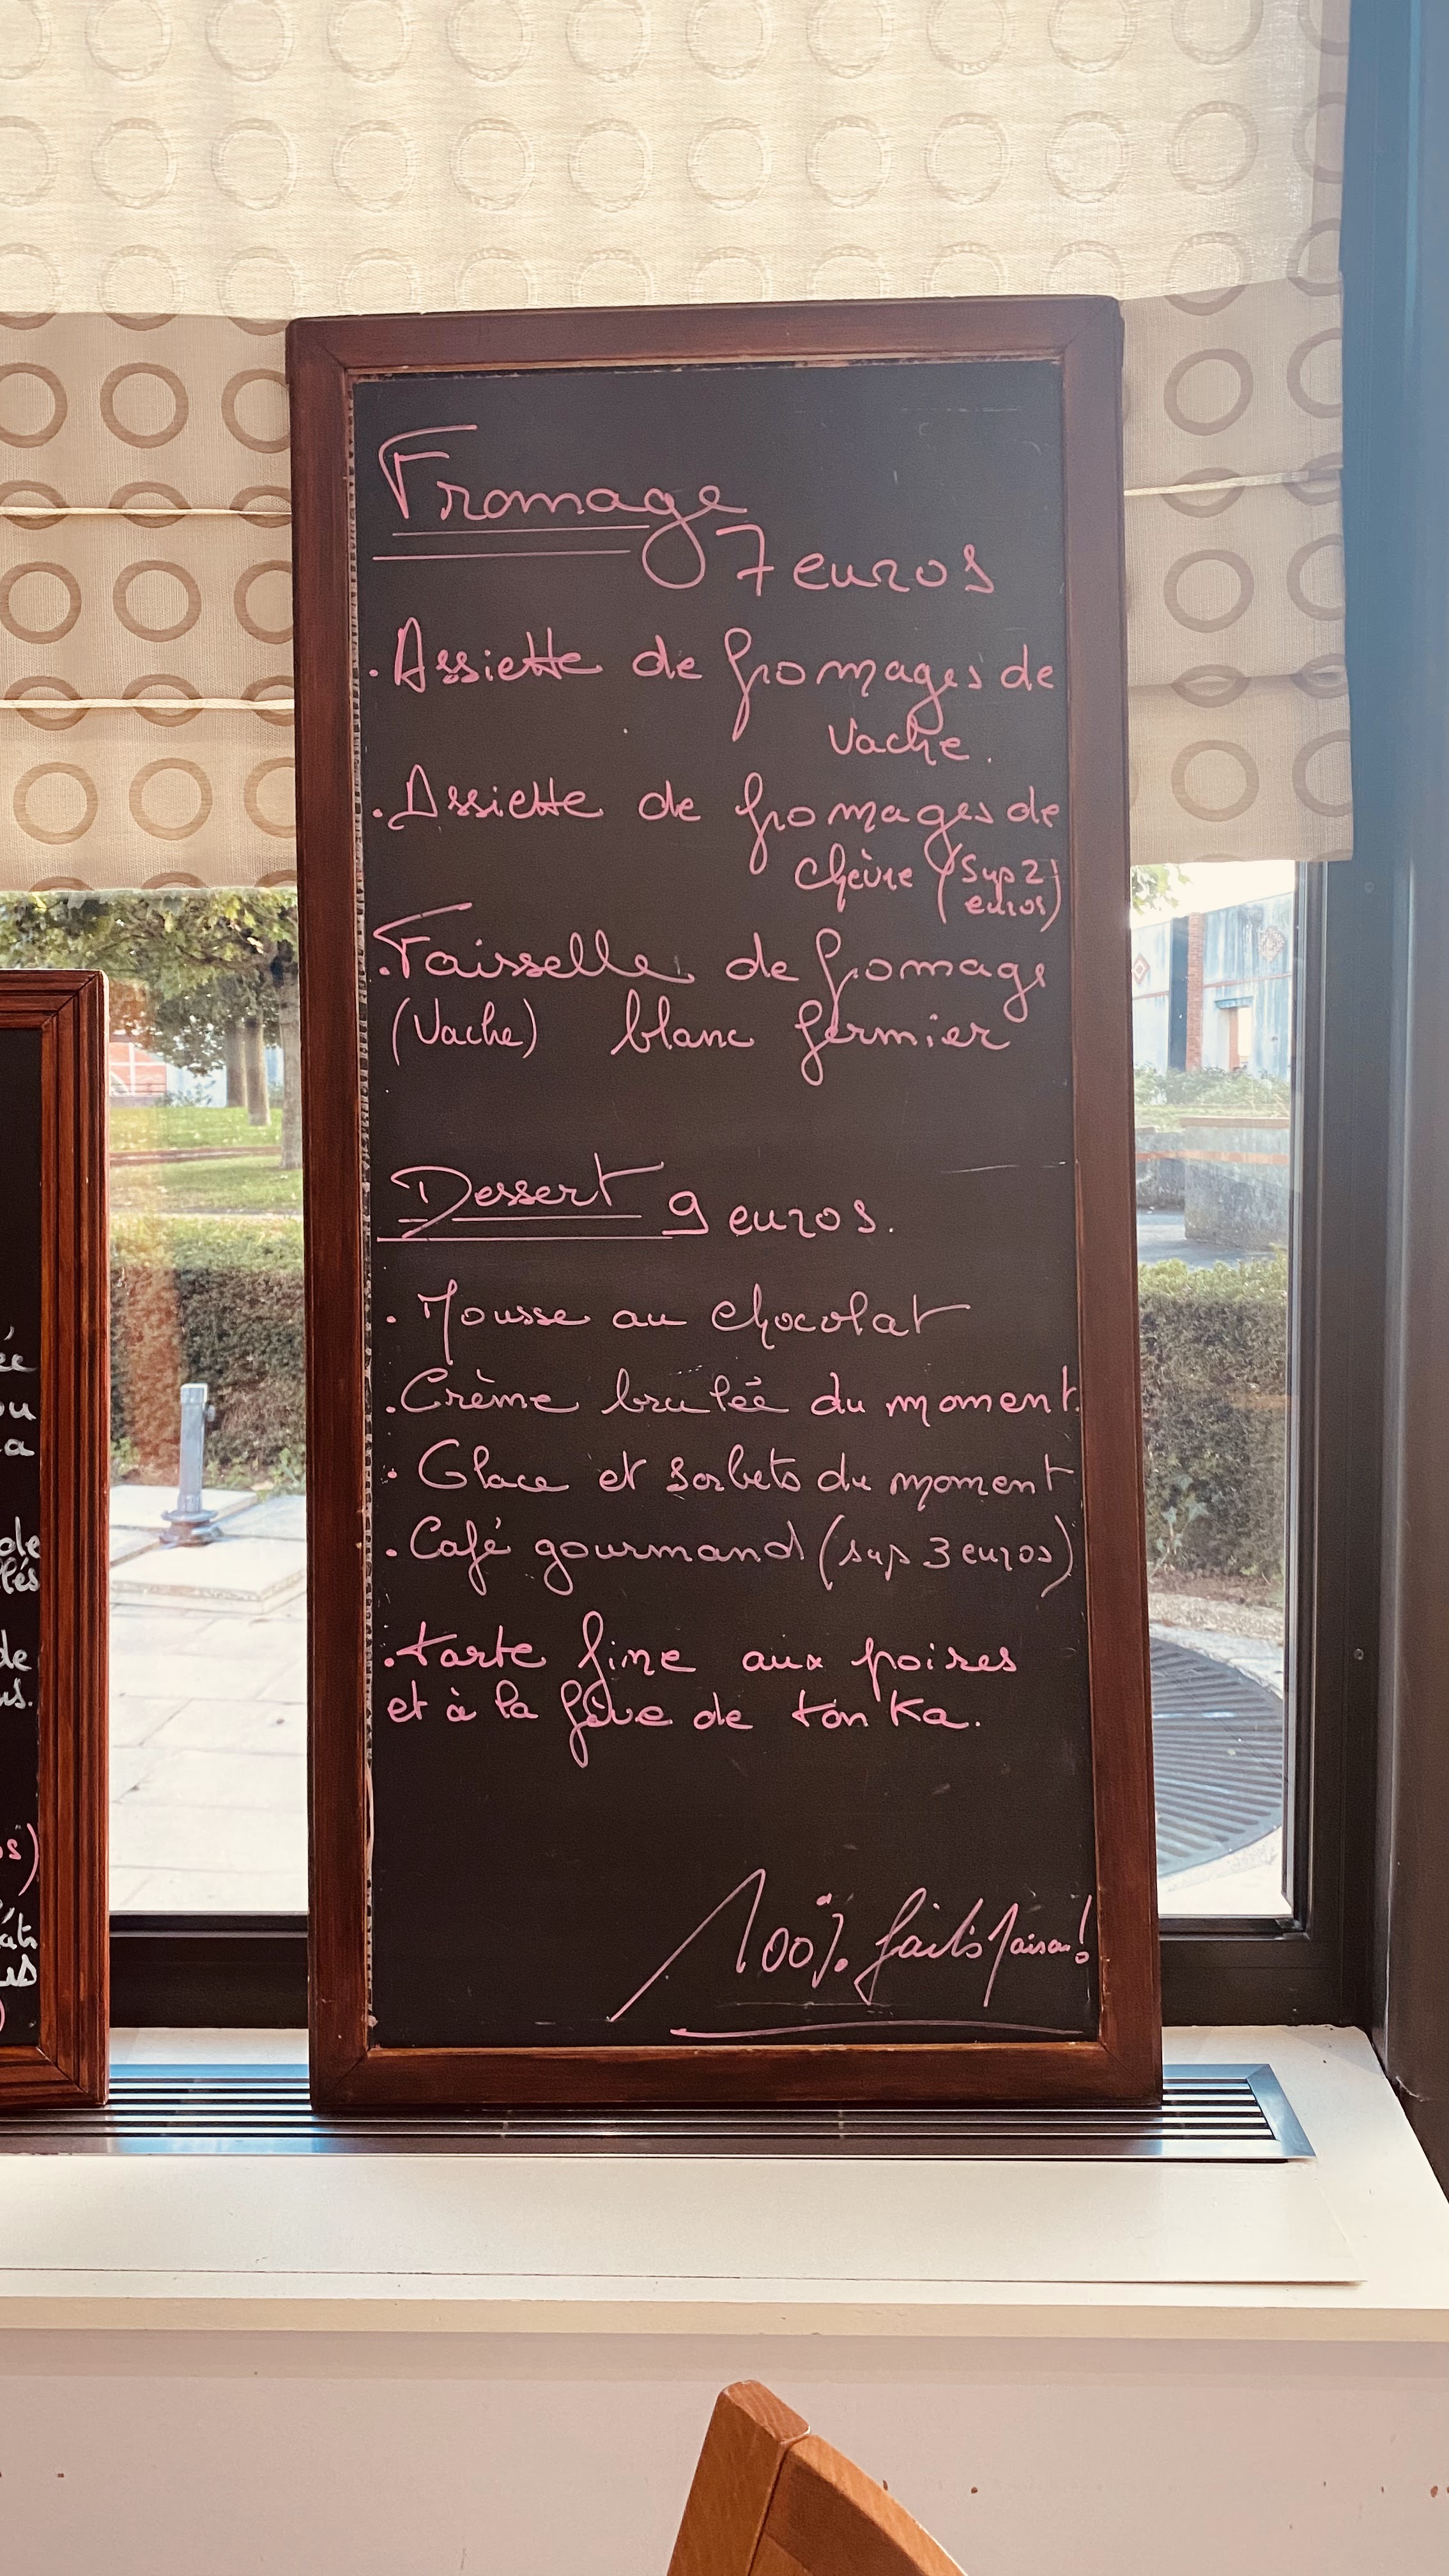 ée
ou
a
de
lés
de
us.
os)
Fromage
7 euros
. Assiette de fromages de
Vache.
. Assiette de fromages de
chèvre (sup 2
euros)
. Faisselle de fromage
(Vache) blanc fermier
Dessert 9 euros.
. Mousse au chocolat
. Crème brulée du moment.
. Glace et sorbets du moment
. Café gourmand (sup 3 euros)
. tarte fine aux poires
et à la fève de tonka.
100% faits Maison!